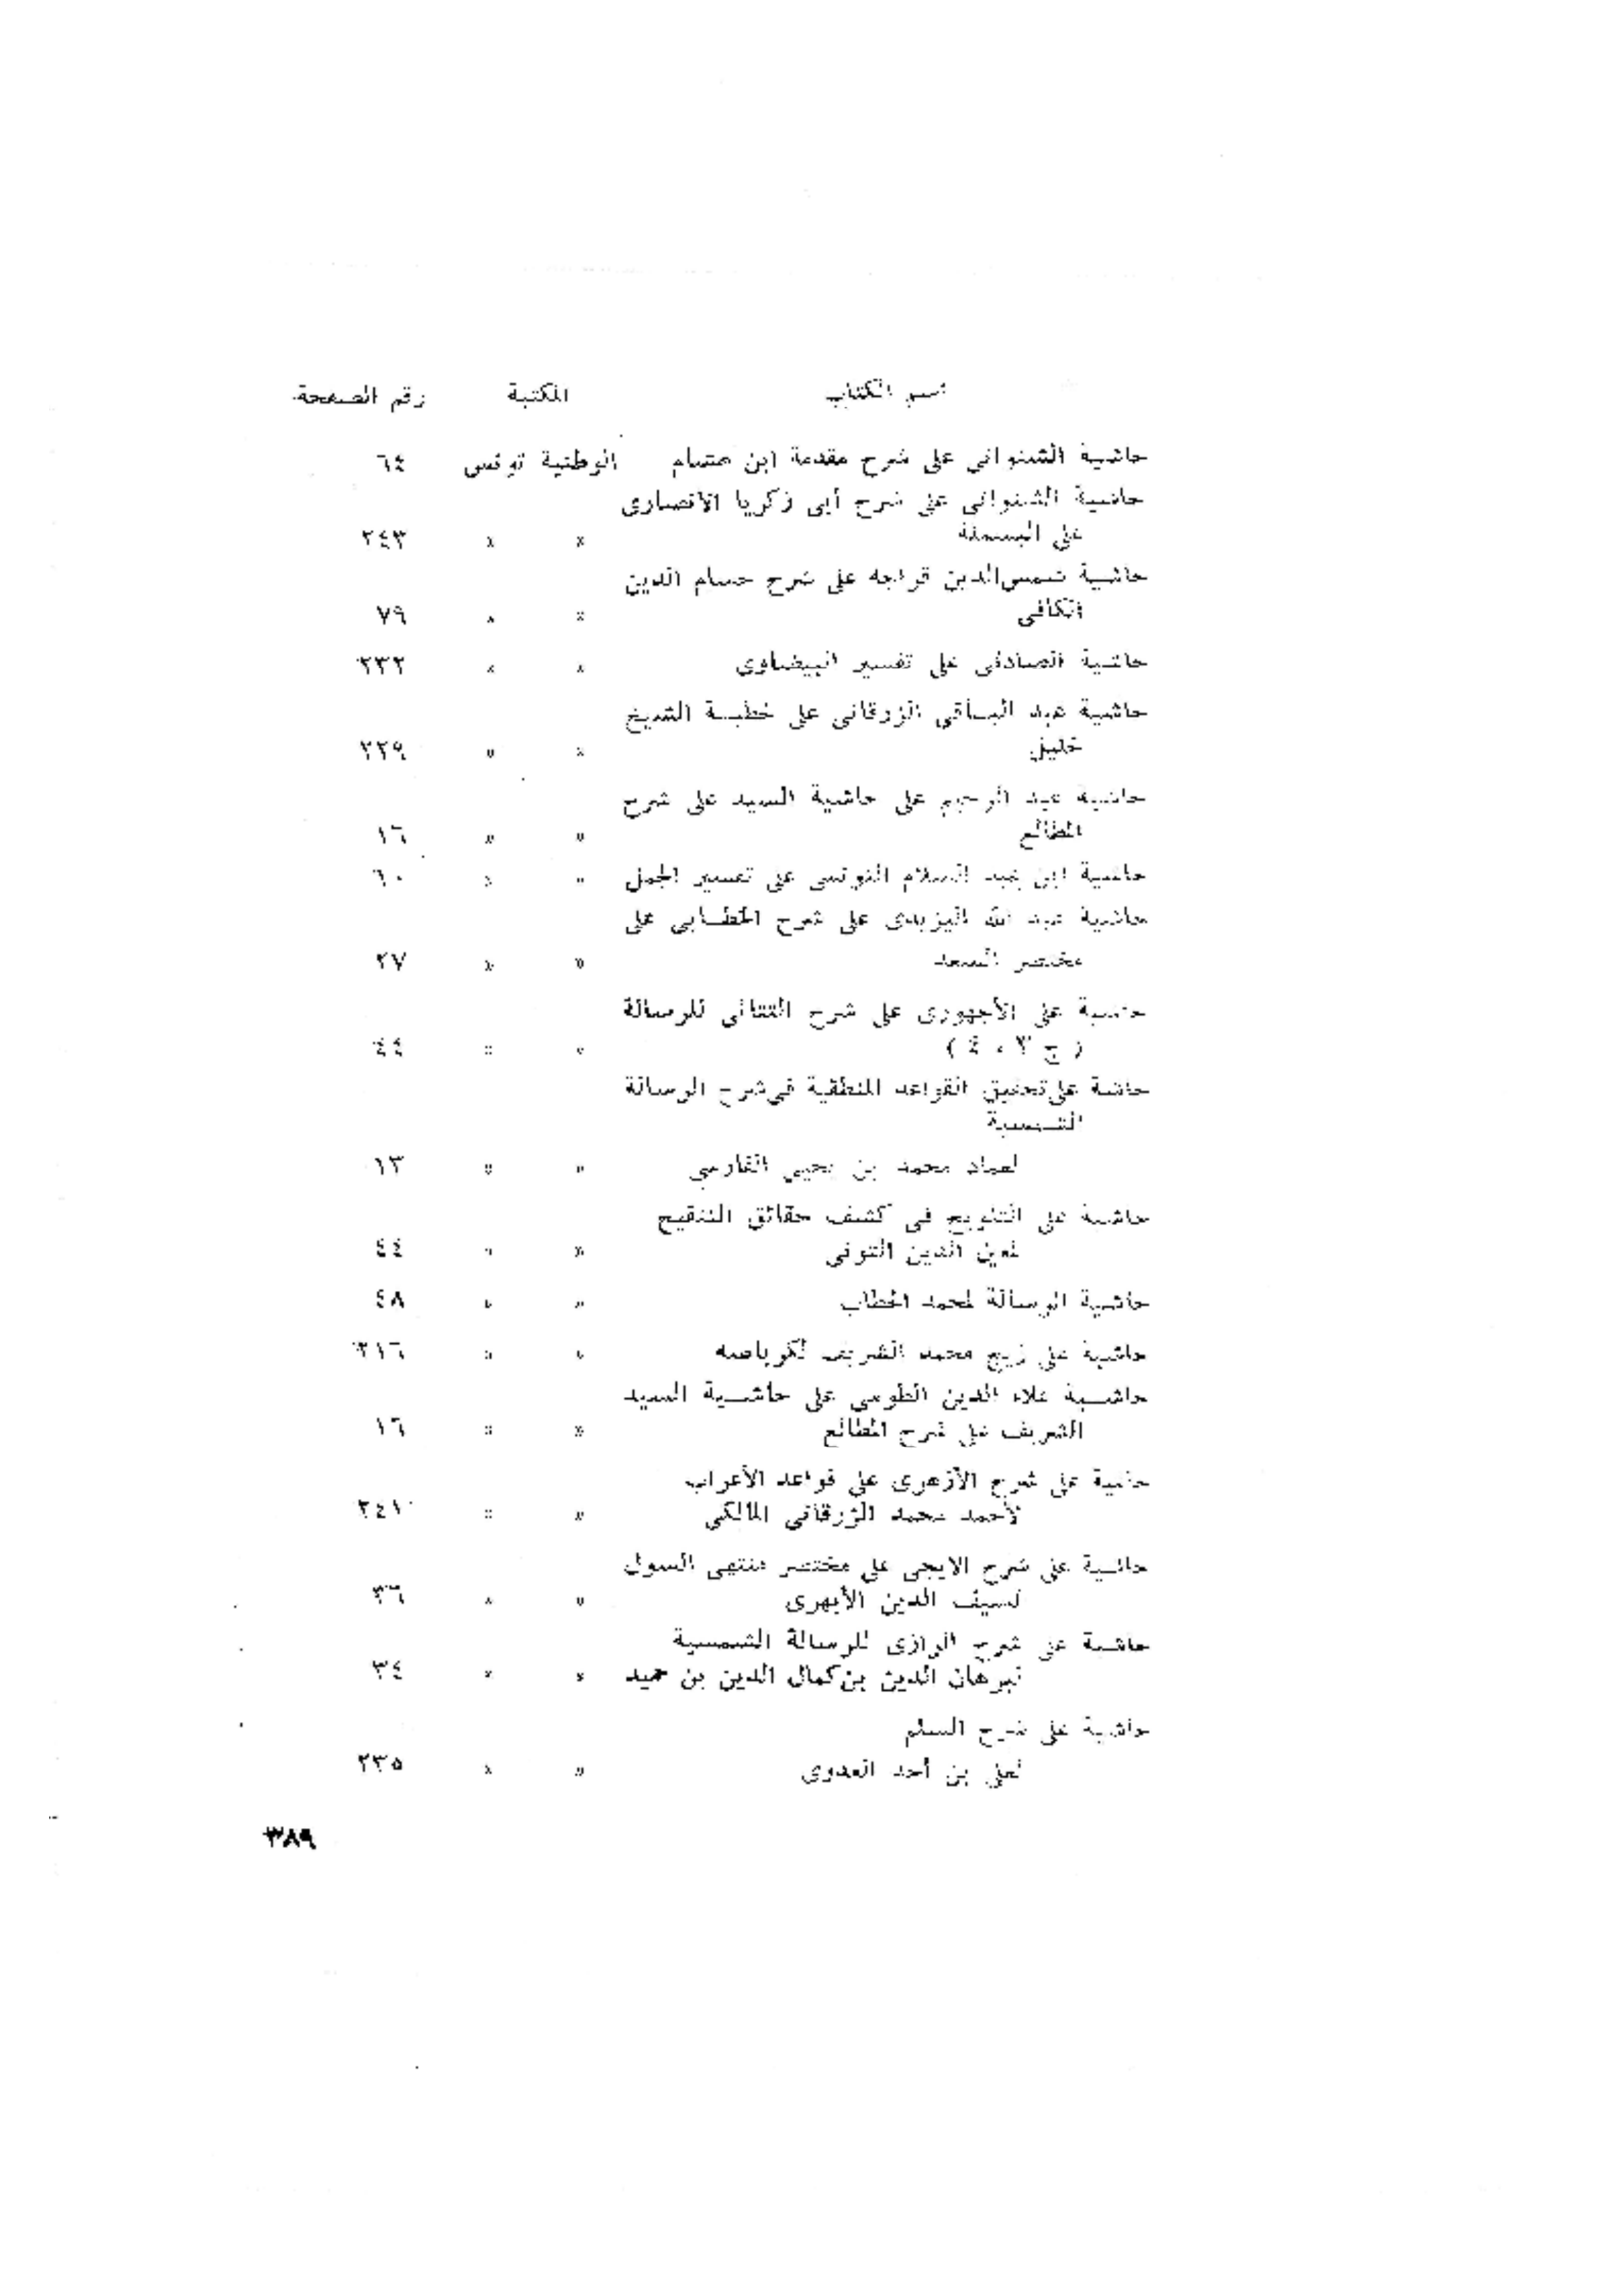 اسم الكتاب المكتبة رقم الصفحة
حاشية الشنوانى على شرح مقدمة ابن هشام الوطنية تونس ٦٤
حاشية الشنوانى على شرح أبى زكريا الانصارى
على البسملة » » ٢٤٣
حاشية شمس الدين قراجه على شرح حسام الدين
الكافى » » ٧٩
حاشية الصادقى على تفسير البيضاوى » » ٢٣٢
حاشية عبد الباقى الزرقانى على خطبة الشيخ
خليل » » ٢٢٩
حاشية عبد الرحيم على حاشية السيد على شرح
المطالع » » ١٦
حاشية ابن عبد السلام التونسى على تفسير الجمل » » ٦٠
حاشية عبد الله اليزيدى على شرح الخطابى على
مختصر السعد » » ٢٧
حاشية على الأجهورى على شرح التتائى للرسالة
( ج ٣ ، ٤ ) » » ٤٤
حاشية على تحقيق القواعد المنطقية فى شرح الرسالة
الشمسية
لعماد محمد بن يحيى الفارسى » » ١٣
حاشية على التلويح فى كشف حقائق التنقيح
لمعين الدين التونى » » ٤٤
حاشية الرسالة لمحمد الحطاب » » ٤٨
حاشية على زيج محمد الشريف لكرباصه » » ٣١٦
حاشية علاء الدين الطوسى على حاشية السيد
الشريف على شرح المطالع » » ١٦
حاشية على شرح الأزهرى على قواعد الأعراب
لأحمد محمد الزرقانى المالكى » » ٢٤١
حاشية على شرح الايجى على مختصر منتهى السول
لسيف الدين الأبهرى » » ٣٦
حاشية على شرح الرازى للرسالة الشمسية
لبرهان الدين بن كمال الدين بن حميد » » ٣٤
حاشية على شرح السلم
لعلى بن أحمد العدوى » » ٢٣٥
٣٨٩